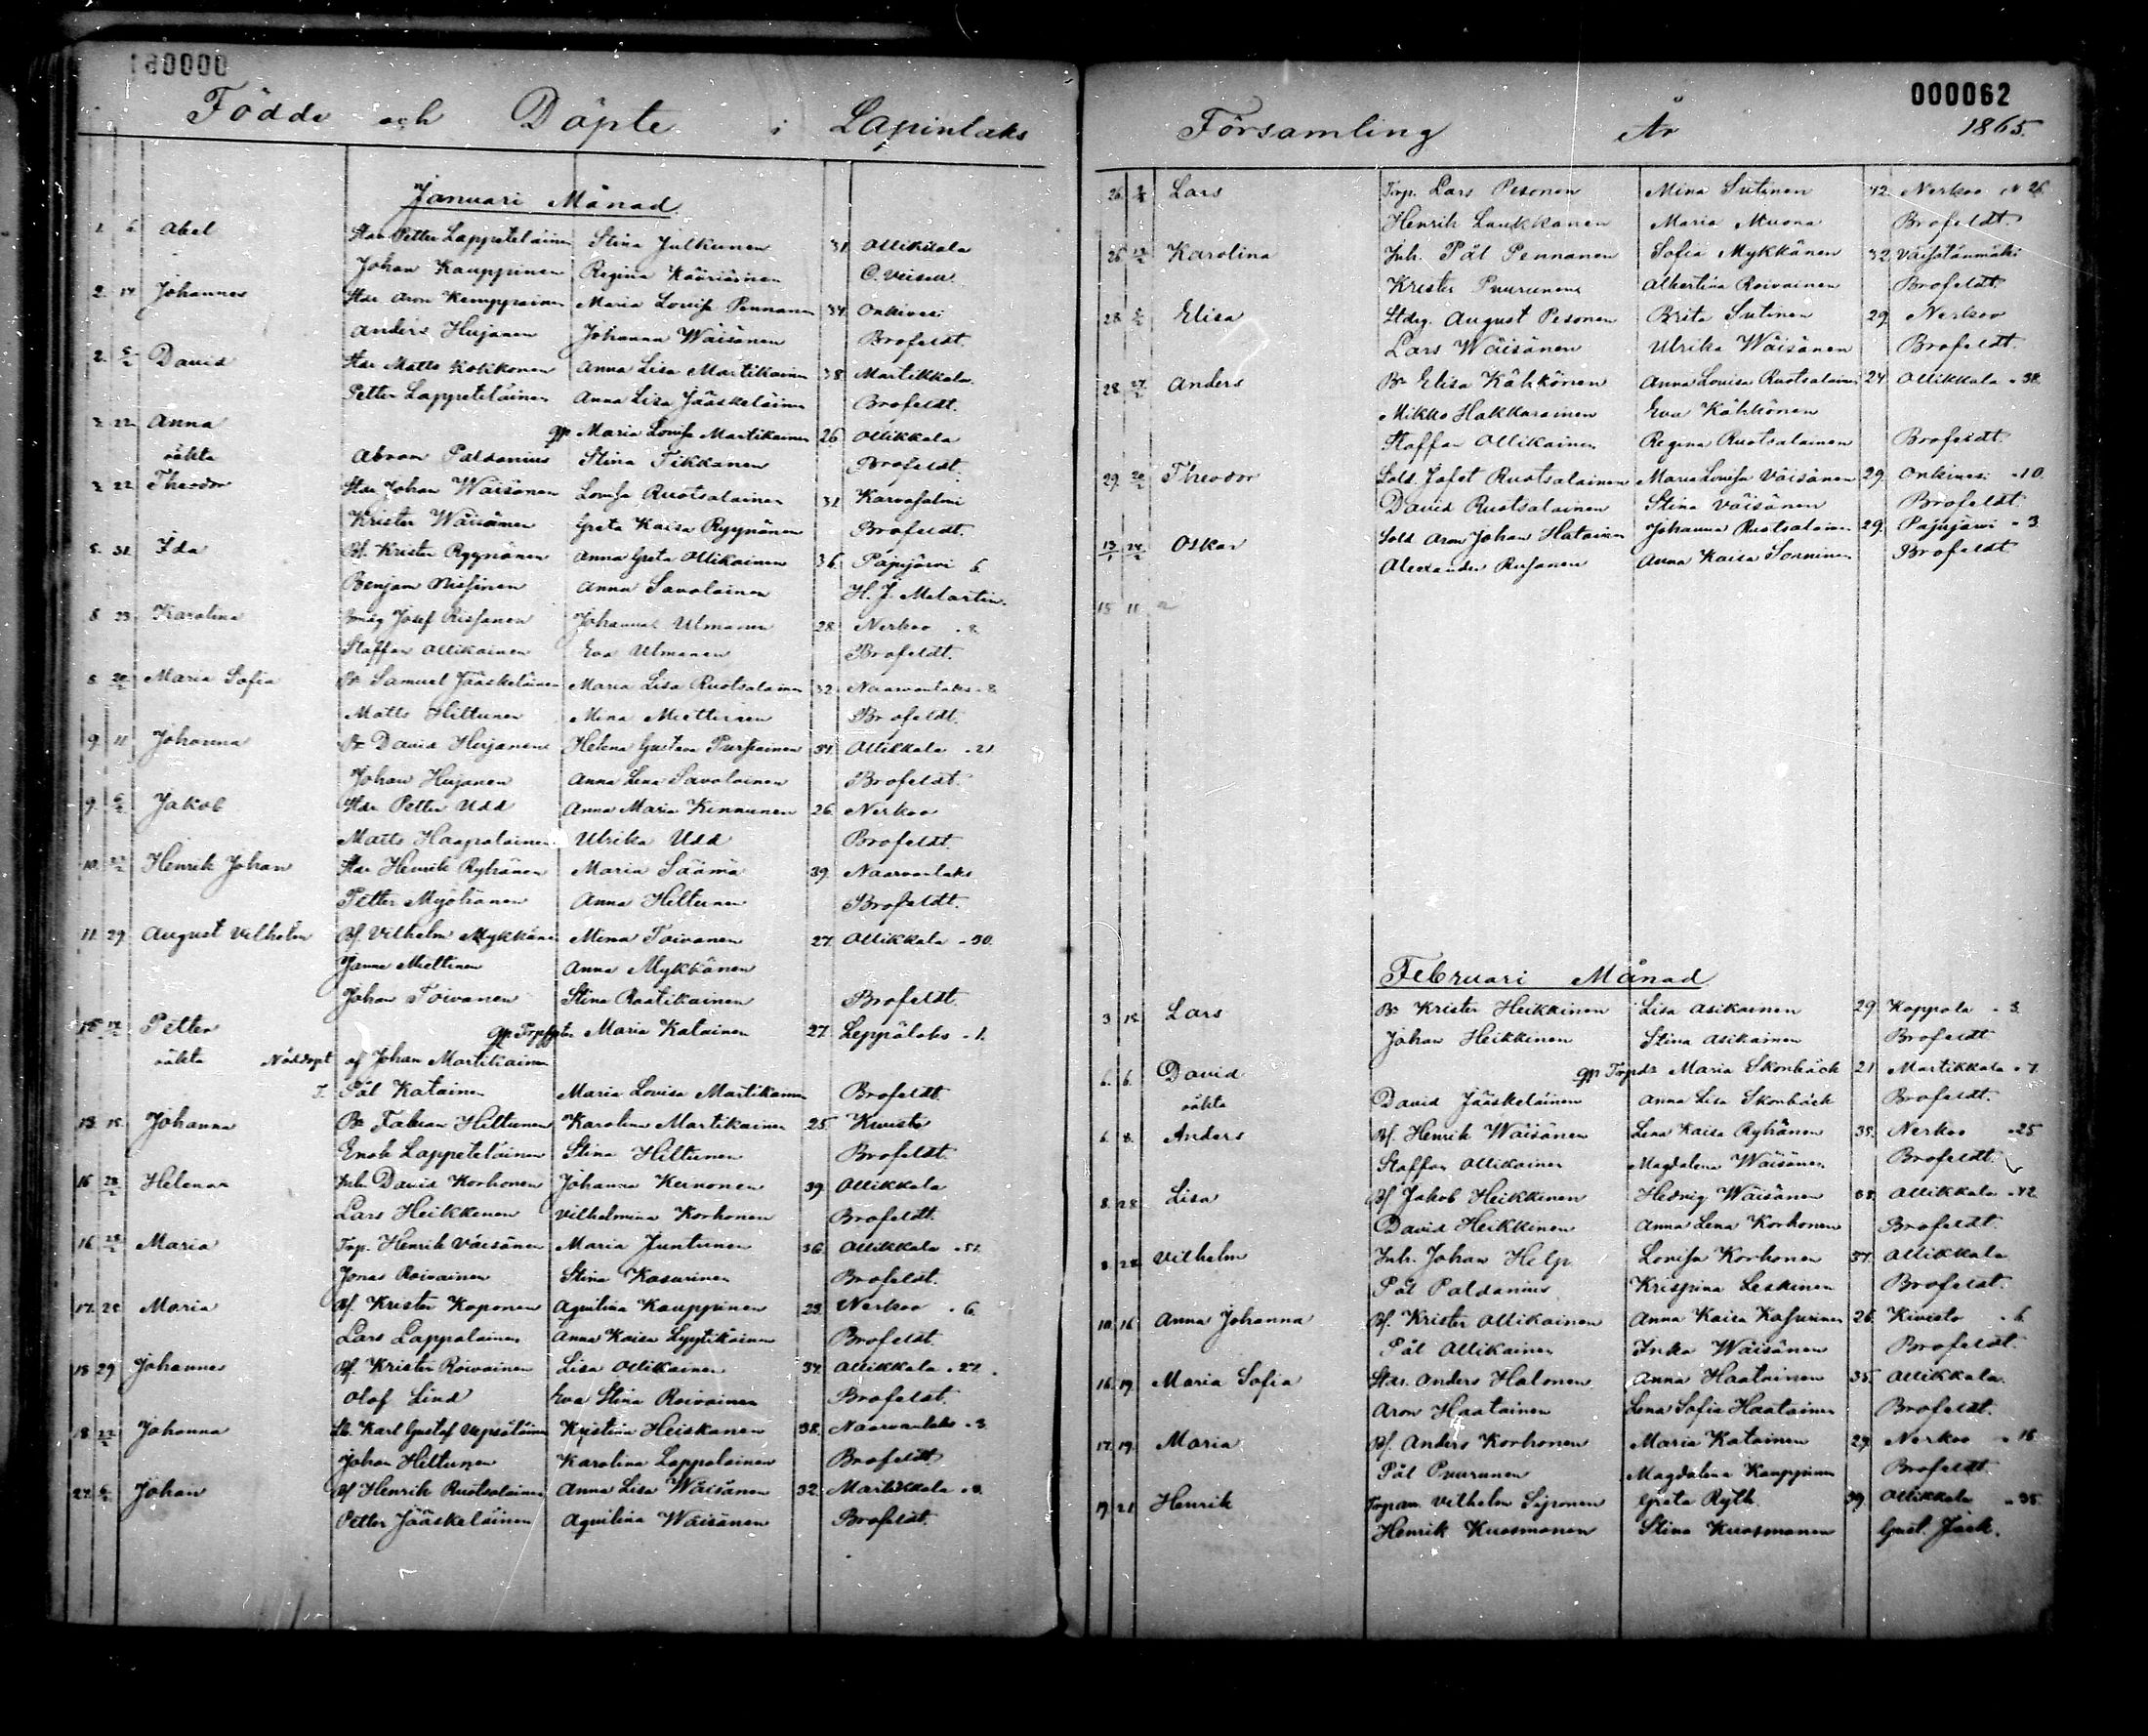 000061
Födde och Döpte i Lapinlaks
Januari Månad
1. 6. Abel Petter Lappeteläinen Stina Julkunen 31. Ollikkala
Johan Kauppinen Regina Kääriäinen
2. 14. Johannes Aron Kemppainen Maria Lovisa Pennanen 34. Onkivesi
Anders Hujanen Johanna Wäisänen Brofeldt.
2. 5/2 David Matts Kokkonen Anna Lisa Martikainen 38. Martikkala
Petter Lappeteläinen Anna Lisa Jääskeläinen Brofeldt.
22. Anna Maria Lovisa Martikainen 26 Ollikkala
oäkta Abram Paldanius Stina Tikkanen Brofeldt.
22. Theodor Johan Wäisänen Lovisa Ruotsalainen 31. Karvasalmi
Krister Wäisänen Greta Kaisa Ryynänen Brofeldt.
5. 31. Ida Bf. Krister Ryynänen Anna Greta Ollikainen 36. Pajujärvi 6.
Benjam Nissinen Anna Savolainen H. J. Melartin.
8. 23. Karolina Josef Rissanen Johanna Ulmanen 28. Nerkoo
Staffan Ollikainen Eva Ulmanen Brofeldt.
8. Maria Sofia Samuel Jääskeläinen Maria Lisa Ruotsalainen 32. Naarvanlaks
Matts Hiltunen Mina Miettinen Brofeldt.
9. 11. Johanna David Hujanen Helena Gustava Pursiainen 34. Ollikkala 21.
Johan Hujanen Anna Lena Savolainen Brofeldt.
9. Jakob Petter Udd Anna Maria Kinnunen 26. Nerkoo
Matts Haapalainen Ulrika Udd Brofeldt.
10. Henrik Johan Henrik Ryhänen Maria Säämä 39. Naarvanlaks
Petter Myöhänen Anna Hiltunen Brofeldt.
11. 29. August Vilhelm Bf. Vilhelm Mykkänen Mina Toivanen 27. Ollikkala 30.
Janne Miettinen Anna Mykkänen
Johan Toivanen Stina Raatikainen Brofeldt.
Petter Maria Katainen 27. Leppälaks 1.
oäkta Nöddöpt af Johan Martikainen
Pål Katainen Maria Lovisa Martikainen Brofeldt.
13. 15. Johanna Fabian Hiltunen Karolina Martikainen 25. Kivistö
Enok Lappeteläinen Stina Hiltunen Brofeldt.
16 Helena Inh. David Korhonen Johanna Kernonen 39. Ollikkala
Lars Heikkinen Vilhelmina Korhonen Brofeldt.
16. Maria Torp. Henrik Väisänen Maria Juntunen 36. Ollikkala
Jonas Roivainen Stina Kasurinen Brofeldt.
17. Maria Bf. Krister Koponen Aqvilina Kauppinen Nerkoo 6.
Lars Lappalainen Anna Kaisa Lyytikäinen Brofeldt.
18 29 Johannes Bf. Krister Roivainen Lisa Ollikainen Ollikkala 22.
Olof Lind Eva Stina Roivainen Brofeldt.
18 Johanna Karl Gustaf Kristina Heiskanen 38. Naarvanlaks 3.
Johan Hiltunen Karolina Lappalainen Brofeldt.
Johan Bf Henrik Ruotsalainen Anna Lisa Wäisänen 32. Martikkala
Petter Jääskeläinen Aqvilina Wäisänen Brofeldt.
000062
Församling År 1865.
26. Lars Torp. Lars Pesonen Mina Sutinen 42. Nerkoo N 26
Henrik Laukkanen Maria Muona Brofeldt.
Karolina Inh. Pål Pennanen Sofia Mykkänen 32. Väisälänmäki
Krister Puurunen Albertina Roivainen Brofeldt.
28. Elisa August Pesonen Brita Sutinen 29. Nerkoo
Lars Wäisänen Ulrika Wäisänen Brofeldt.
28. Anders Elisa Kähkönen Anna Lovisa Ruotsalainen 24. Ollikkala 38.
Mikko Hakkarainen Eva Kähkönen
Staffan Ollikainen Regina Ruotsalainen Brofeldt.
29. Theodor Sold. Jafet Ruotsalainen Maria Lovisa Väisänen 29. Onkivesi 10.
David Ruotsalainen Stina Väisänen Brofeldt.
Oskar Sold Aron Johan Hatainen Johanna Ruotsalainen 29. Pajujärvi 3.
Alexander Rusanen Anna Kaisa Sorninen Brofeldt
15 11
Februari Månad
3 Lars Krister Heikkinen Lisa Asikainen 29. Koppola 3.
Johan Heikkinen Stina Asikainen Brofeldt
6. 6. David Maria Skonbäck 21 Martikkala 7.
oäkta David Jääskeläinen Anna Lisa Skonbäck Brofeldt.
6. 8. Anders Bf. Henrik Wäisänen Lena Kaisa Ryhänen 35. Nerkoo 25
Staffan Ollikainen Magdalena Wäisänen Brofeldt.
8. 28. Lisa Bf Jakob Heikkinen Hedvig Wäisänen 38. Ollikkala 42.
David Heikkinen Anna Lena Korhonen Brofeldt.
8. 28. Vilhelm Inh. Johan Help Lovisa Korhonen Ollikkala
Pål Paldanius Krispina Leskinen Brofeldt.
10. 16. Anna Johanna Bf. Krister Ollikainen Anna Kaisa Kasurinen 26. Kivistö 6.
Pål Ollikainen Inka Wäisänen Brofeldt.
16. 19. Maria Sofia Anders Halonen Anna Haatainen 35. Ollikkala
Aron Haatainen Lena Sofia Haatainen Brofeldt.
17. 19. Maria Bf. Anders Korhonen Maria Katainen 29. Nerkoo 16
Pål Puurunen Magdalena Kauppinen Brofeldt.
19. 21. Henrik Vilhelm Siponen Greta Ryth. 39. Ollikkala 35.
Henrik Kuosmanen Stina Kuosmanen Gust. Jack.